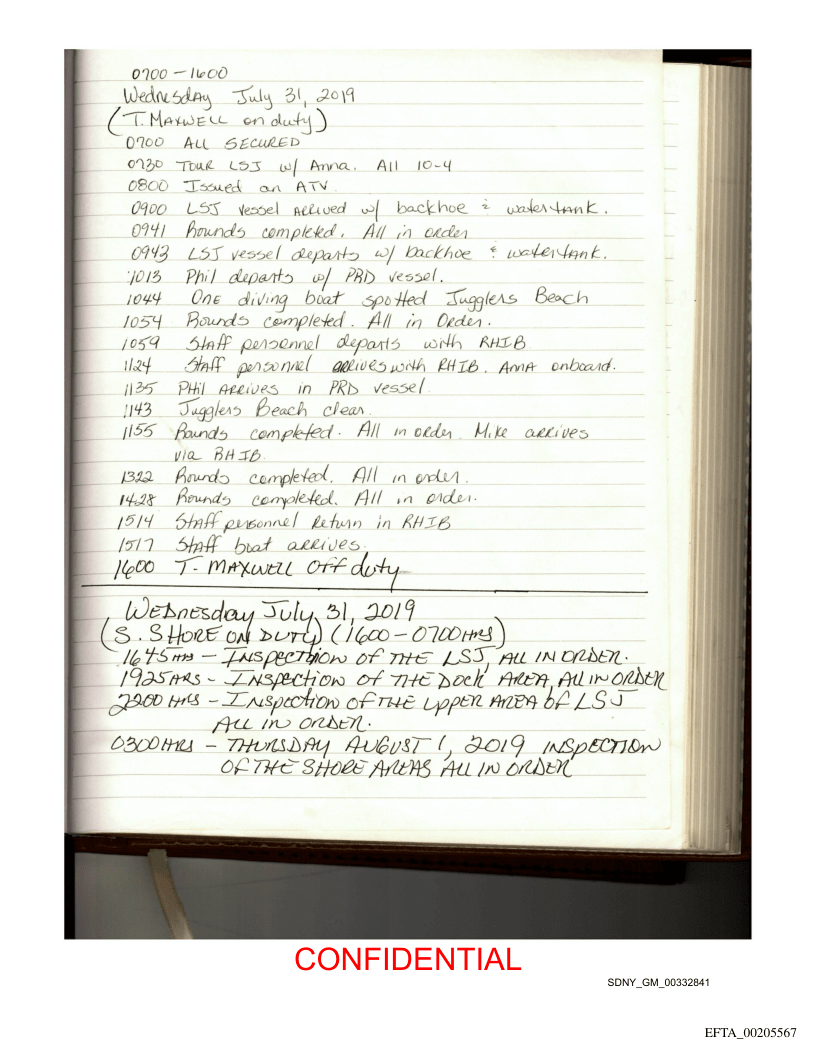 0700 - 1600
Wednesday July 31, 2019
(T. MAXWELL on duty)
0700 ALL SECURED
0730 TOUR LSJ w/ Anna. All 10-4
0800 Issued an ATV
0900 LSJ vessel arrived w/ backhoe & watertank.
0941 Rounds completed. All in order
0943 LSJ vessel departs w/ backhoe & watertank.
1013 Phil departs w/ PRD vessel.
1044 One diving boat spotted Jugglers Beach
1054 Rounds completed. All in Order.
1059 Staff personnel departs with RHIB
1124 Staff personnel arrives with RHIB. Anna onboard.
1135 Phil Arrives in PRD vessel.
1143 Jugglers Beach clear.
1155 Rounds completed. All in order. Mike arrives
via RHIB.
1322 Rounds completed. All in order.
1428 Rounds completed. All in order.
1514 Staff personnel Return in RHIB
1517 Staff boat arrives.
1600 T. MAXWELL Off duty
WEDnesday July 31, 2019
(S. SHORE ON DUTY) (1600 - 0700 HRS)
1645 HRS - INSPECTION OF THE LSJ, ALL IN ORDER.
1925 HRS - INSPECTION OF THE DOCK AREA, ALL IN ORDER
2200 HRS - INSPECTION OF THE UPPER AREA OF LSJ
ALL IN ORDER.
0300 HRS - THURSDAY AUGUST 1, 2019 INSPECTION
OF THE SHORE AREAS ALL IN ORDER
CONFIDENTIAL
SDNY_GM_00332841
EFTA_00205567